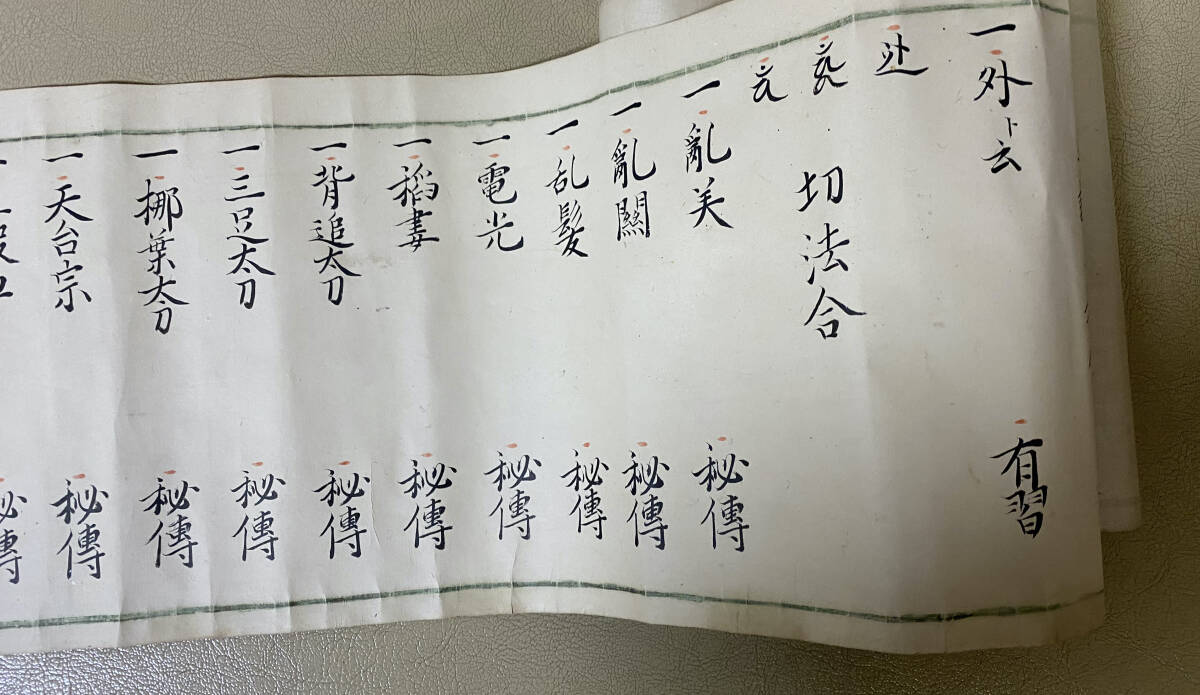 一外ト云 有習
切法合
一亂美 秘傳
一亂關 秘傳
一乱髪 秘傳
一電光 秘傳
一稲妻 秘傳
一背追太刀 秘傳
一三足太刀 秘傳
一梛葉太刀 秘傳
一天台宗 秘傳
秘傳